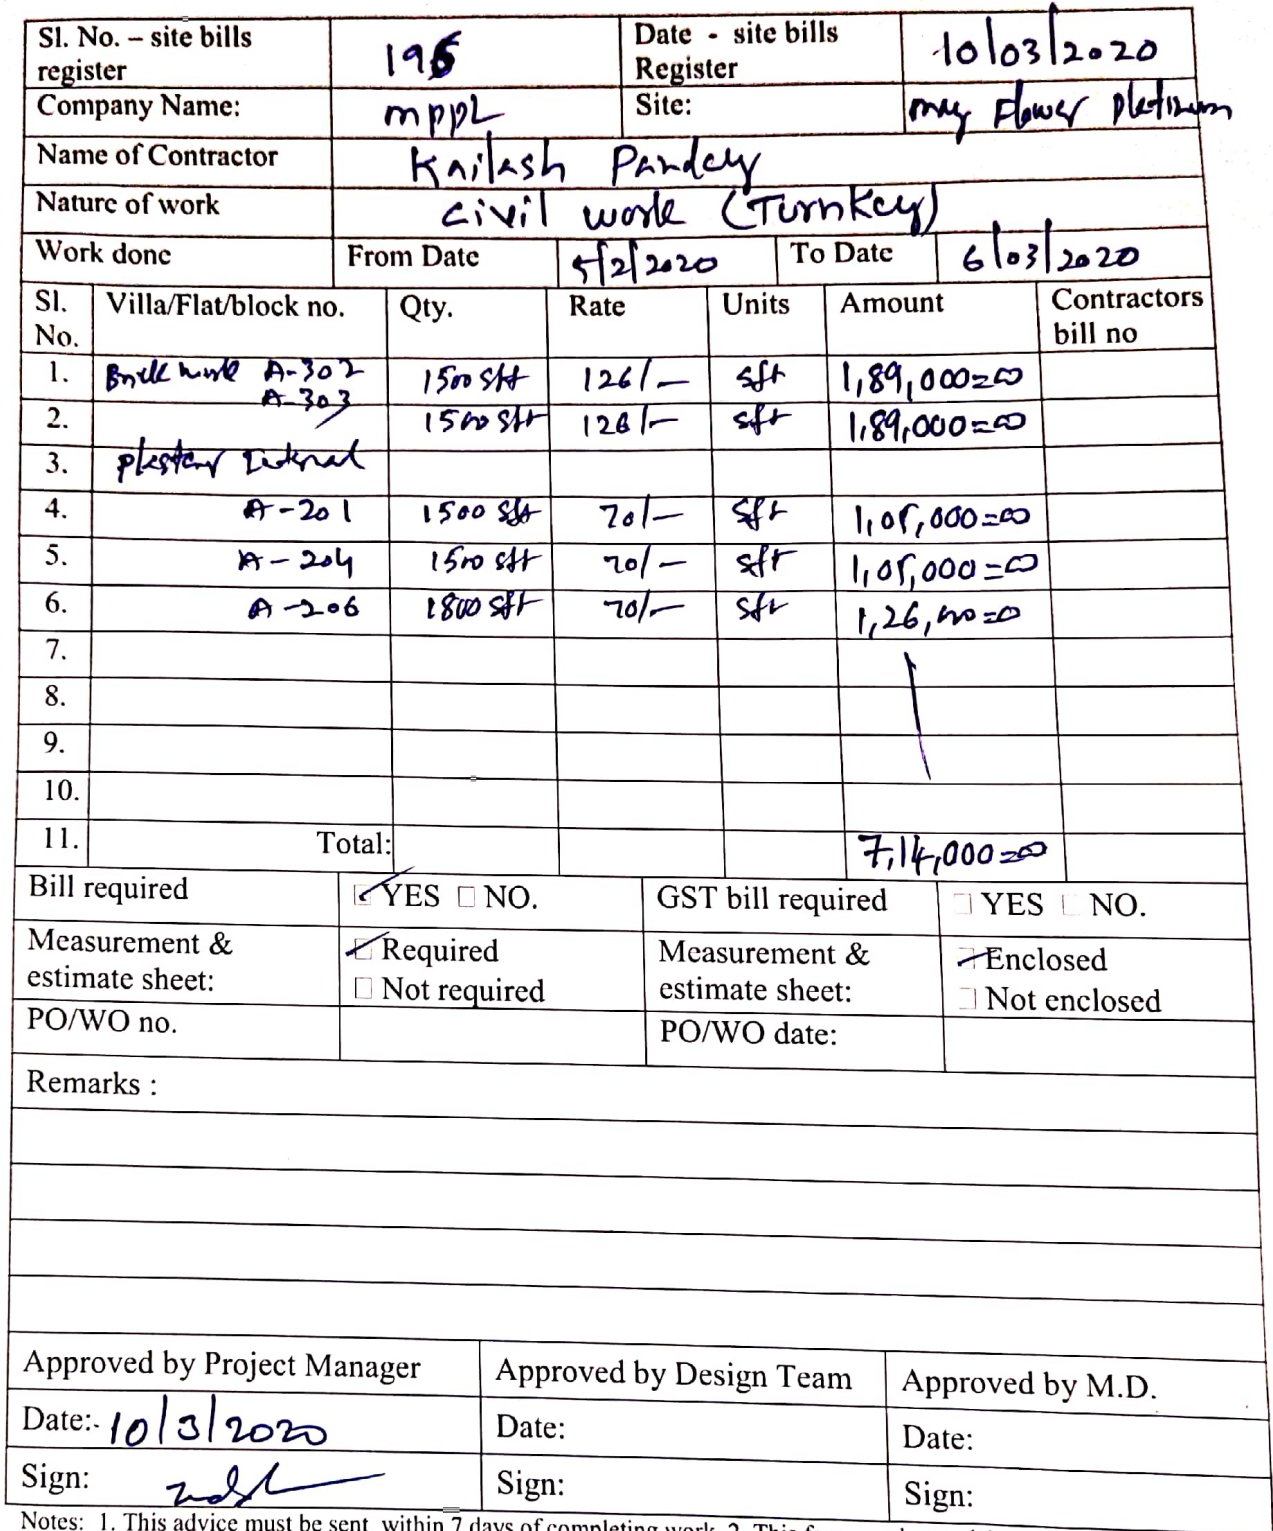 Sl. No. – site bills register 195 Date - site bills Register 10/03/2020
Company Name: MPPL Site: May Flower Platinum
Name of Contractor Kailash Pandey
Nature of work Civil work (Turnkey)
Work done From Date 5/2/2020 To Date 6/03/2020
Sl. No. Villa/Flat/block no. Qty. Rate Units Amount Contractors bill no
1. Brick work A-302 1500 Sft 126/- Sft 1,89,000=00
2. A-303 1500 Sft 126/- Sft 1,89,000=00
3. plastery Internal
4. A-201 1500 Sft 70/- Sft 1,05,000=00
5. A-204 1500 Sft 70/- Sft 1,05,000=00
6. A-206 1800 Sft 70/- Sft 1,26,000=00
7.
8.
9.
10.
11. Total: 7,14,000=00
Bill required YES NO. GST bill required YES NO.
Measurement & estimate sheet: Required Not required Measurement & estimate sheet: Enclosed Not enclosed
PO/WO no. PO/WO date:
Remarks :
Approved by Project Manager Approved by Design Team Approved by M.D.
Date:- 10/3/2020 Date: Date:
Sign: Sign: Sign:
Notes: 1. This advice must be sent within 7 days of completing work. 2. This